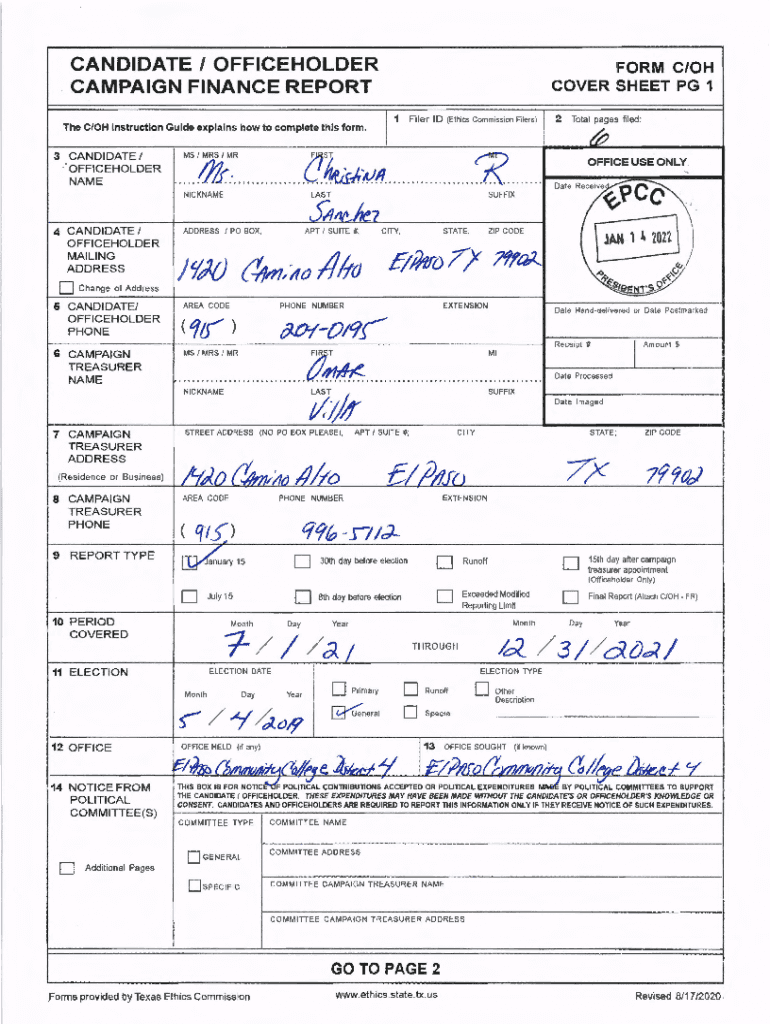 CANDIDATE / OFFICEHOLDER
CAMPAIGN FINANCE REPORT
FORM C/OH
COVER SHEET PG 1
The C/OH Instruction Guide explains how to complete this form.
1 Filer ID (Ethics Commission Filers)
2 Total pages filed:
6
3 CANDIDATE / OFFICEHOLDER NAME
MS / MRS / MR FIRST MI
Ms. Christina R
NICKNAME LAST SUFFIX
Sanchez
OFFICE USE ONLY
Date Received
EPCC
JAN 14 2022
PRESIDENT'S OFFICE
4 CANDIDATE / OFFICEHOLDER MAILING ADDRESS
Change of Address
ADDRESS / PO BOX; APT / SUITE #; CITY; STATE; ZIP CODE
1420 Camino Alto El Paso TX 79902
5 CANDIDATE/ OFFICEHOLDER PHONE
AREA CODE PHONE NUMBER EXTENSION
(915) 204-0195
Date Hand-delivered or Date Postmarked
Receipt # Amount $
Date Processed
Date Imaged
6 CAMPAIGN TREASURER NAME
MS / MRS / MR FIRST MI
Omar
NICKNAME LAST SUFFIX
Villa
7 CAMPAIGN TREASURER ADDRESS
(Residence or Business)
STREET ADDRESS (NO PO BOX PLEASE); APT / SUITE #; CITY STATE; ZIP CODE
1420 Camino Alto El Paso TX 79902
8 CAMPAIGN TREASURER PHONE
AREA CODE PHONE NUMBER EXTENSION
(915) 996-5112
9 REPORT TYPE
January 15 30th day before election Runoff 15th day after campaign treasurer appointment (Officeholder Only)
July 15 8th day before election Exceeded Modified Reporting Limit Final Report (Attach C/OH - FR)
10 PERIOD COVERED
Month Day Year Month Day Year
7 / 1 / 21 THROUGH 12 / 31 / 2021
11 ELECTION
ELECTION DATE ELECTION TYPE
Month Day Year
5 / 4 / 2019
Primary Runoff Other Description
General Special
12 OFFICE
OFFICE HELD (if any)
El Paso Community College District 4
13 OFFICE SOUGHT (if known)
El Paso Community College District 4
14 NOTICE FROM POLITICAL COMMITTEE(S)
THIS BOX IS FOR NOTICE OF POLITICAL CONTRIBUTIONS ACCEPTED OR POLITICAL EXPENDITURES MADE BY POLITICAL COMMITTEES TO SUPPORT
THE CANDIDATE / OFFICEHOLDER. THESE EXPENDITURES MAY HAVE BEEN MADE WITHOUT THE CANDIDATE'S OR OFFICEHOLDER'S KNOWLEDGE OR
CONSENT. CANDIDATES AND OFFICEHOLDERS ARE REQUIRED TO REPORT THIS INFORMATION ONLY IF THEY RECEIVE NOTICE OF SUCH EXPENDITURES.
Additional Pages
COMMITTEE TYPE COMMITTEE NAME
GENERAL
COMMITTEE ADDRESS
SPECIFIC
COMMITTEE CAMPAIGN TREASURER NAME
COMMITTEE CAMPAIGN TREASURER ADDRESS
GO TO PAGE 2
Forms provided by Texas Ethics Commission www.ethics.state.tx.us Revised 8/17/2020